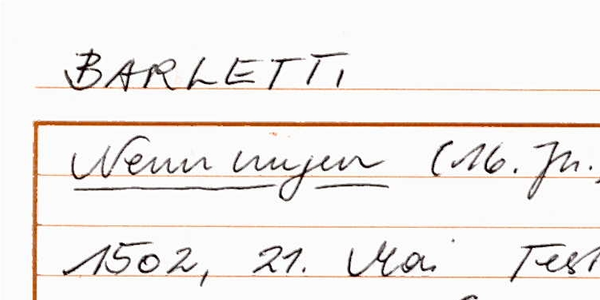 BARLETTI
Nennungen (16. Jh.)
1502, 21. Mai Test